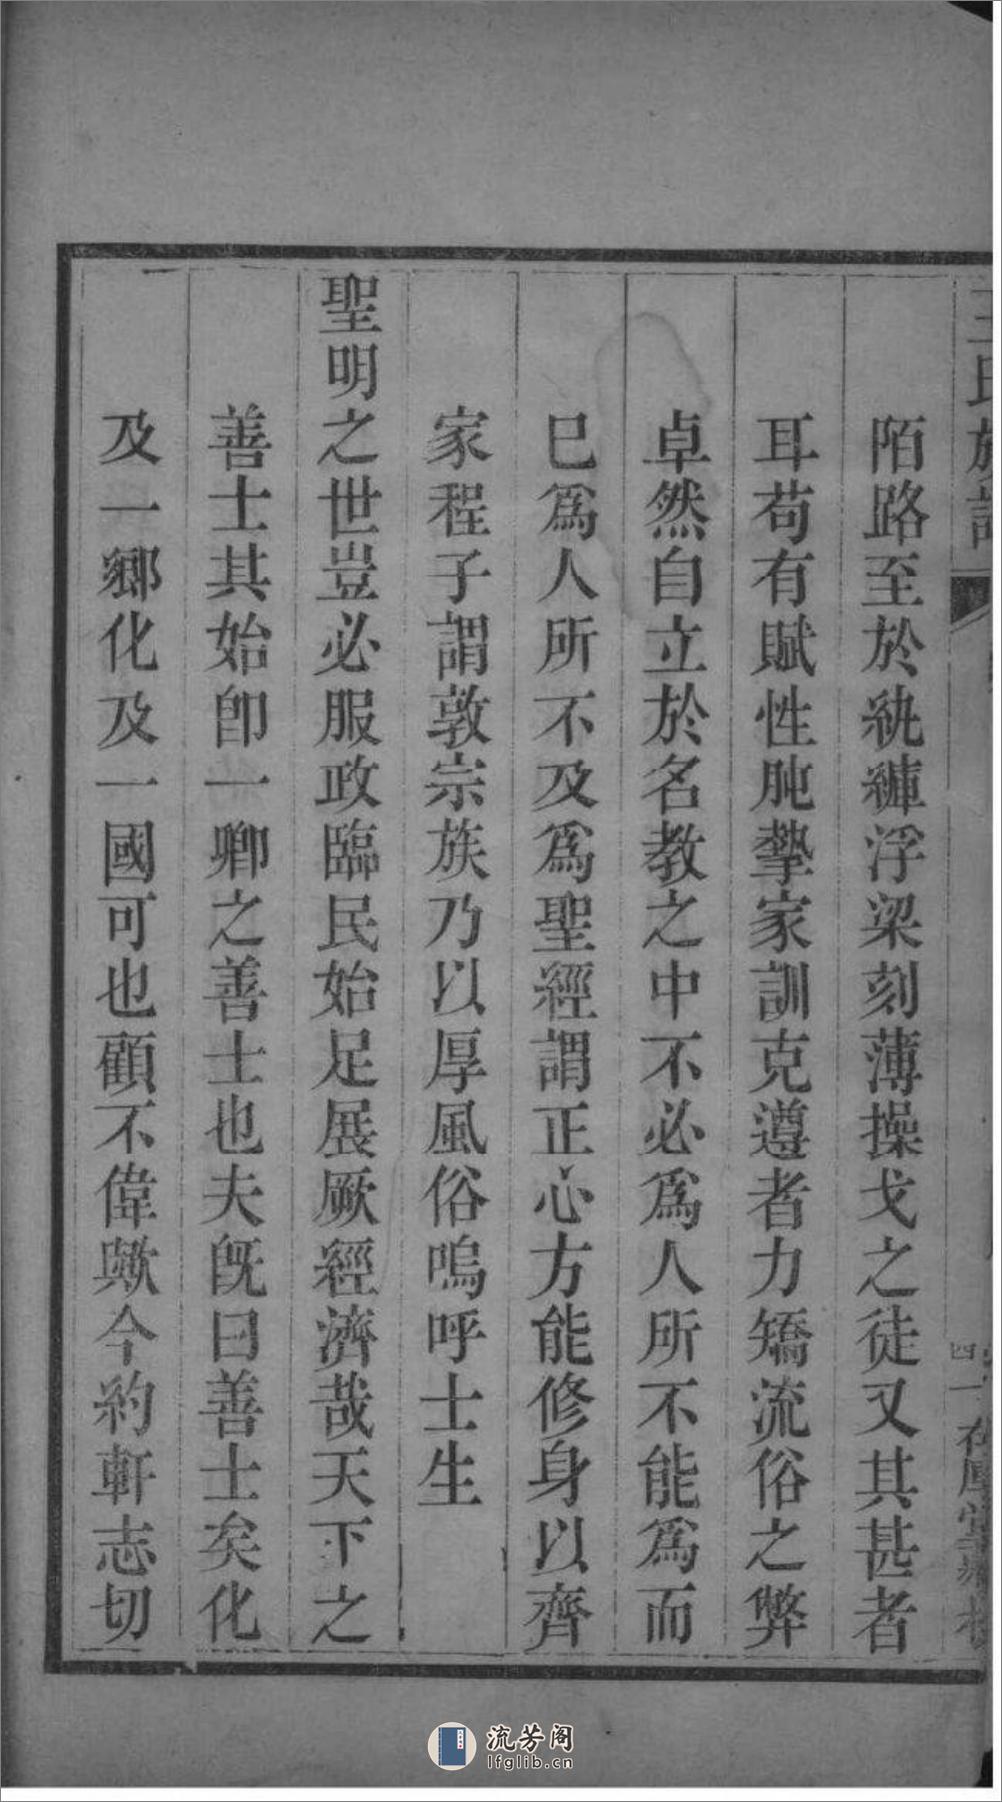 王氏族譜
陌路至於紈褲浮梁刻薄操戈之徒又其甚者
耳苟有賦性肫摯家訓克遵者力矯流俗之弊
卓然自立於名教之中不必爲人所不能爲而
巳爲人所不及爲聖經謂正心方能修身以齊
家程子謂敦宗族乃以厚風俗嗚呼士生
聖明之世豈必服政臨民始足展厥經濟哉天下之
善士其始卽一鄉之善士也夫旣曰善士矣化
及一鄉化及一國可也顧不偉歟今約軒志切
流芳阁
lfglib.cn